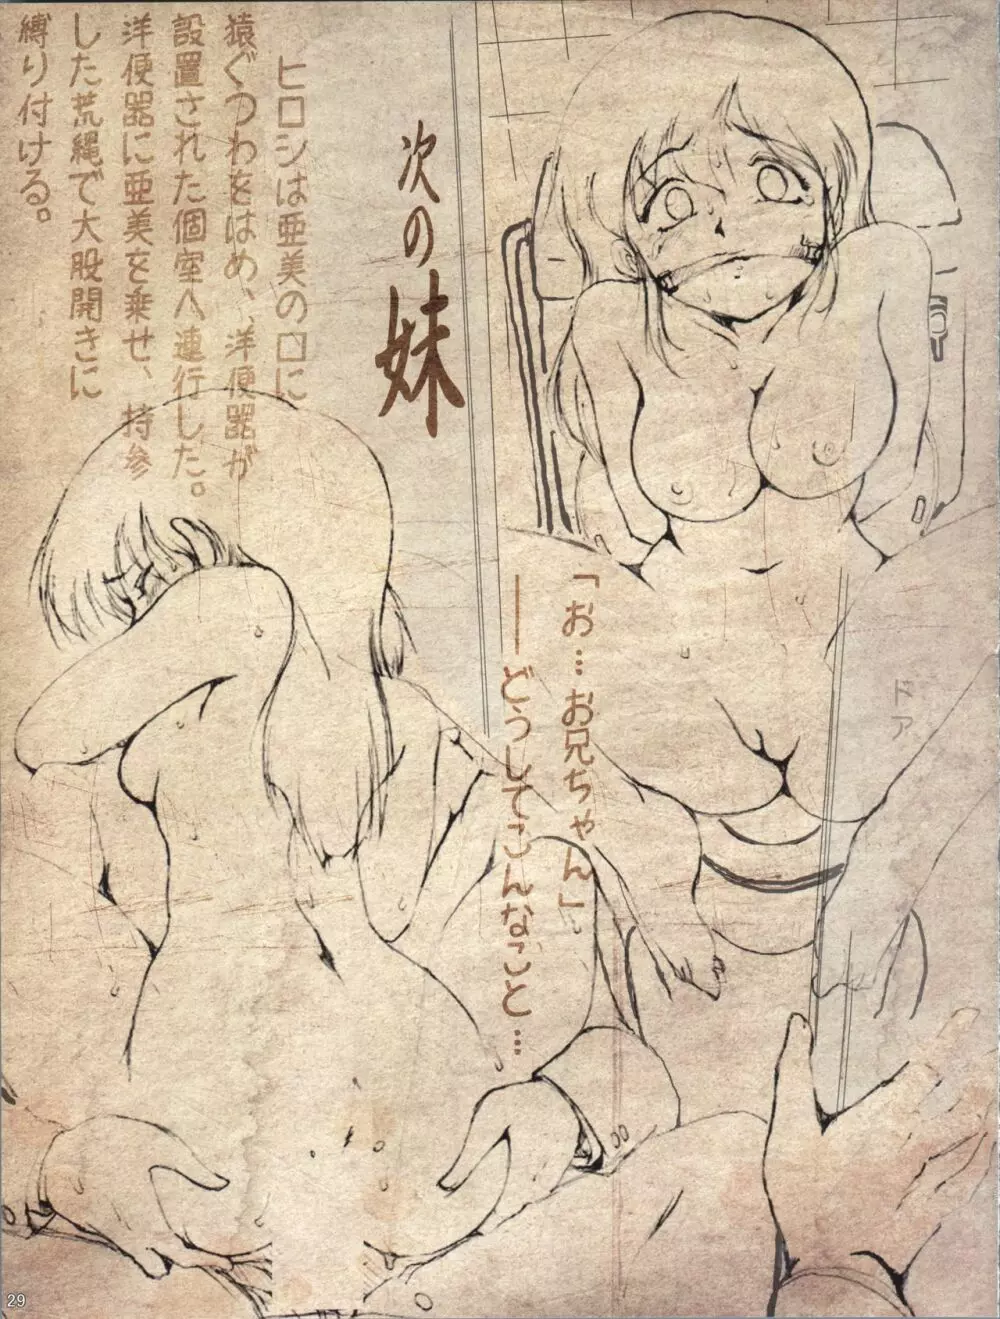 次の妹
ヒロシは亜美の口に
猿ぐつわをはめ、、洋便器が
設置された個室へ連行した。
洋便器に亜美を乗せ、持参
した荒縄で大股開きに
縛り付ける。
「お…お兄ちゃん」
──どうしてこんなこと…
ドア
29